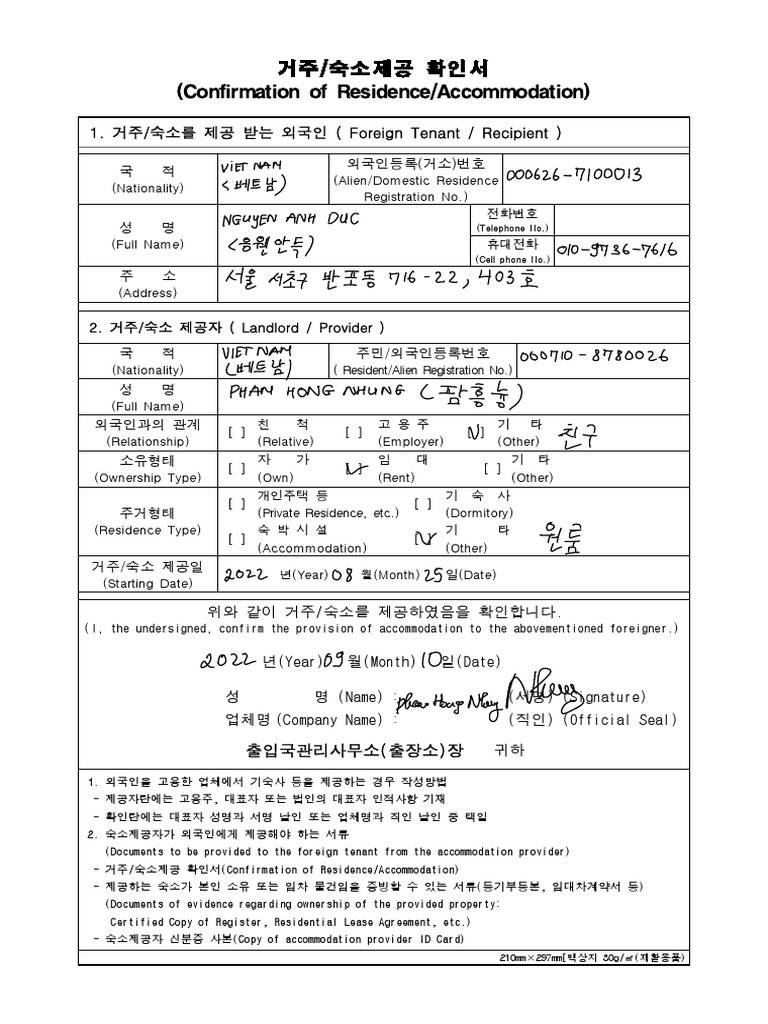 거주/숙소제공 확인서
(Confirmation of Residence/Accommodation)
1. 거주/숙소를 제공 받는 외국인 ( Foreign Tenant / Recipient )
국 적
(Nationality)
VIET NAM
(베트남)
외국인등록(거소)번호
(Alien/Domestic Residence
Registration No.)
000626-7100013
성 명
(Full Name)
NGUYEN ANH DUC
(응웬안득)
전화번호
(Telephone No.)
휴대전화
(Cell phone No.)
010-9736-7616
주 소
(Address)
서울 서초구 반포동 716-22, 403호
2. 거주/숙소 제공자 ( Landlord / Provider )
국 적
(Nationality)
VIET NAM
(베트남)
주민/외국인등록번호
( Resident/Alien Registration No.)
000710-8780026
성 명
(Full Name)
PHAN HONG NHUNG (팜흥늉)
외국인과의 관계
(Relationship)
[ ] 친 척
(Relative)
[ ] 고 용 주
(Employer)
[V] 기 타
(Other)
친구
소유형태
(Ownership Type)
[ ] 자 가
(Own)
[V] 임 대
(Rent)
[ ] 기 타
(Other)
주거형태
(Residence Type)
[ ] 개인주택 등
(Private Residence, etc.)
[ ] 기 숙 사
(Dormitory)
[ ] 숙 박 시 설
(Accommodation)
[V] 기 타
(Other)
원룸
거주/숙소 제공일
(Starting Date)
2022 년(Year) 08 월(Month) 25 일(Date)
위와 같이 거주/숙소를 제공하였음을 확인합니다.
(I, the undersigned, confirm the provision of accommodation to the abovementioned foreigner.)
2022 년(Year) 09 월(Month) 10 일(Date)
성 명 (Name) : Phan Hong Nhung (서명) (Signature) Nhung
업체명 (Company Name) : (직인) (Official Seal)
출입국관리사무소(출장소)장 귀하
1. 외국인을 고용한 업체에서 기숙사 등을 제공하는 경우 작성방법
- 제공자란에는 고용주, 대표자 또는 법인의 대표자 인적사항 기재
- 확인란에는 대표자 성명과 서명 날인 또는 업체명과 직인 날인 중 택일
2. 숙소제공자가 외국인에게 제공해야 하는 서류
(Documents to be provided to the foreign tenant from the accommodation provider)
- 거주/숙소제공 확인서(Confirmation of Residence/Accommodation)
- 제공하는 숙소가 본인 소유 또는 임차 물건임을 증빙할 수 있는 서류(등기부등본, 임대차계약서 등)
(Documents of evidence regarding ownership of the provided property:
Certified Copy of Register, Residential Lease Agreement, etc.)
- 숙소제공자 신분증 사본(Copy of accommodation provider ID Card)
210mm×297mm[백상지 80g/㎡(재활용품)